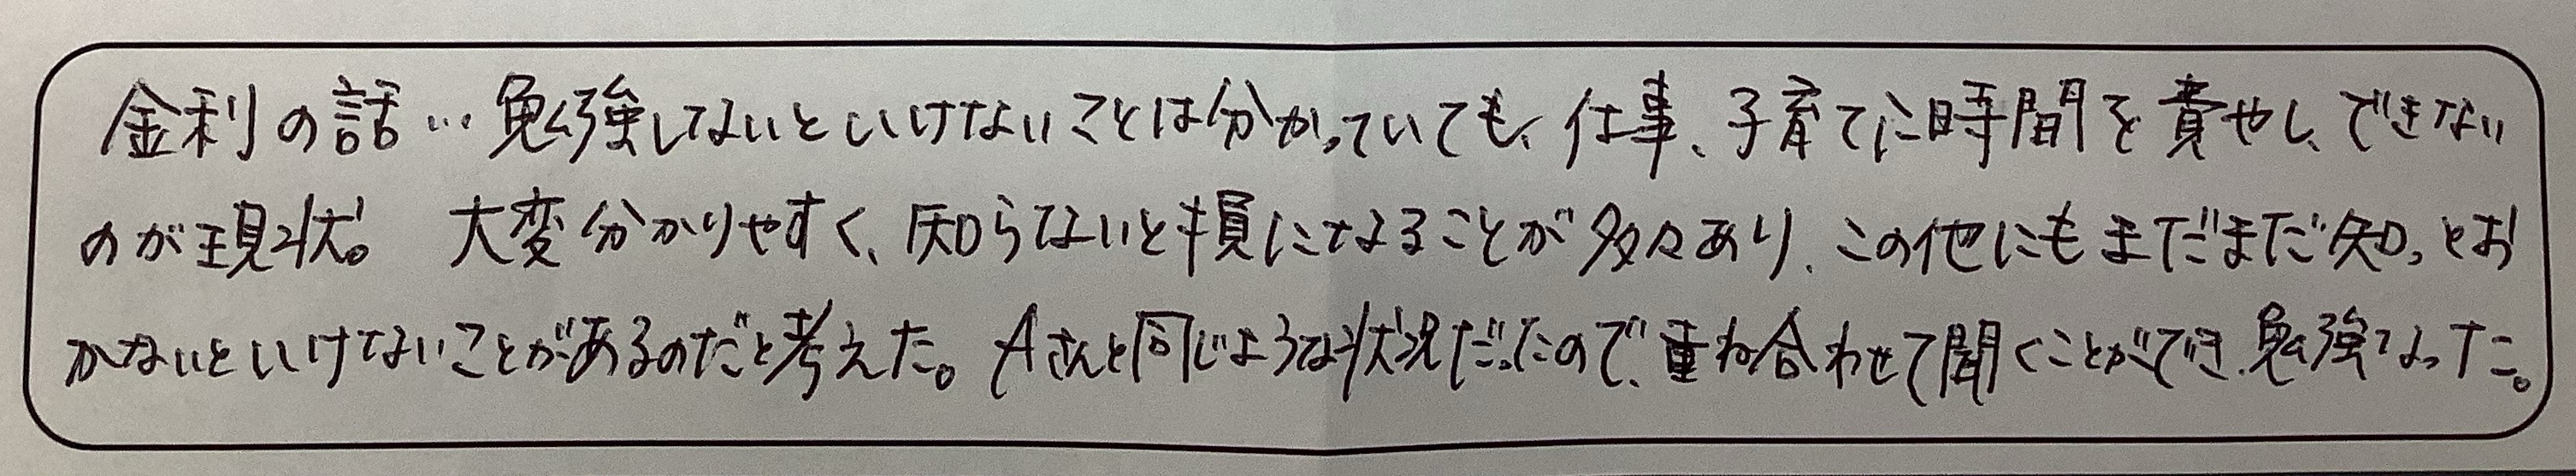 金利の話…勉強しないといけないことは分かっていても、仕事、子育てに時間を費やし、できない
のが現状。 大変分かりやすく、知らないと損になることが多々あり、この他にもまだまだ知っとお
かないといけないことがあるのだと考えた。Aさんと同じような状況だったので、重ね合わせて聞くことができ、勉強なった。